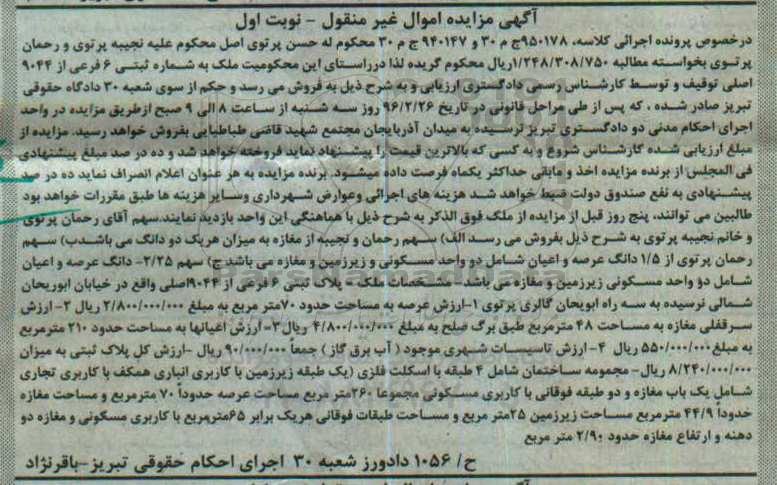 آگهی مزایده اموال غیر منقول - نوبت اول
درخصوص پرونده اجرائی کلاسه، ۹۵۰۱۷۸ج م ۳۰ و ۹۴۰۱۴۷ ج م ۳۰ محکوم له حسن پرتوی اصل محکوم علیه نجیبه پرتوی و رحمان
پرتوی بخواسته مطالبه ۱/۲۴۸/۳۰۸/۷۵۰ریال محکوم گریده لذا درراستای این محکومیت ملک به شماره ثبتی ۶ فرعی از ۹۰۴۴
اصلی توقیف و توسط کارشناس رسمی دادگستری ارزیابی و به شرح ذیل به فروش می رسد و حکم از سوی شعبه ۳۰ دادگاه حقوقی
تبریز صادر شده ، که پس از طی مراحل قانونی در تاریخ ۹۶/۲/۲۶ روز سه شنبه از ساعت ۸ الی ۹ صبح ازطریق مزایده در واحد
اجرای احکام مدنی دو دادگستری تبریز نرسیده به میدان آذربایجان مجتمع شهید قاضی طباطبایی بفروش خواهد رسید. مزایده از
مبلغ ارزیابی شده کارشناس شروع و به کسی که بالاترین قیمت را پیشنهاد نماید فروخته خواهد شد و ده در صد مبلغ پیشنهادی
فی المجلس از برنده مزایده اخذ و مابقی حداکثر یکماه فرصت داده میشود. برنده مزایده به هر عنوان اعلام انصراف نماید ده در صد
پیشنهادی به نفع صندوق دولت ضبط خواهد شد هزینه های اجرائی وعوارض شهرداری وسایر هزینه ها طبق مقررات خواهد بود
طالبین می توانند، پنج روز قبل از مزایده از ملک فوق الذکر به شرح ذیل با هماهنگی این واحد بازدید نمایند.سهم آقای رحمان پرتوی
و خانم نجیبه پرتوی به شرح ذیل بفروش می رسد الف) سهم رحمان و نجیبه از مغازه به میزان هریک دو دانگ می باشدب) سهم
رحمان پرتوی از ۱/۵ دانگ عرصه و اعیان شامل دو واحد مسکونی و زیرزمین و مغازه می باشد ج) سهم ۲/۲۵- دانگ عرصه و اعیان
شامل دو واحد مسکونی زیرزمین و مغازه می باشد - مشخصات ملک - پلاک ثبتی ۶ فرعی از ۹۰۴۴اصلی واقع در خیابان ابوریحان
شمالی نرسیده به سه راه ابویحان گالری پرتوی ۱-ارزش عرصه به مساحت حدود ۷۰متر مربع به مبلغ ۲/۸۰۰/۰۰۰/۰۰۰ ریال ۲- ارزش
سرقفلی مغازه به مساحت ۴۸ مترمربع طبق برگ صلح به مبلغ ۴/۸۰۰/۰۰۰/۰۰۰ ریال۳- ارزش اعیانها به مساحت حدود ۲۱۰ مترمربع
به مبلغ۵۵۰/۰۰۰/۰۰۰ ریال ۴- ارزش تاسیسات شهری موجود ( آب برق گاز ) جمعاً ۹۰/۰۰۰/۰۰۰ ریال -ارزش کل پلاک ثبتی به میزان
۸/۲۴۰/۰۰۰/۰۰۰ ریال- مجموعه ساختمان شامل ۴ طبقه با اسکلت فلزی (یک طبقه زیرزمین با کاربری انباری همکف با کاربری تجاری
شامل یک باب مغازه و دو طبقه فوقانی با کاربری مسکونی مجموعا ۲۶۰متر مربع مساحت عرصه حدوداً ۷۰ مترمربع و مساحت مغازه
حدودا ۴۴/۹ مترمربع مساحت زیرزمین ۲۵متر مربع و مساحت طبقات فوقانی هریک برابر ۶۵مترمربع با کاربری مسکونی و مغازه دو
دهنه و ارتفاع مغازه حدود ۲/۹۰ متر مربع
ح/ ۱۰۵۶ دادورز شعبه ۳۰ اجرای احکام حقوقی تبریز-باقرنژاد